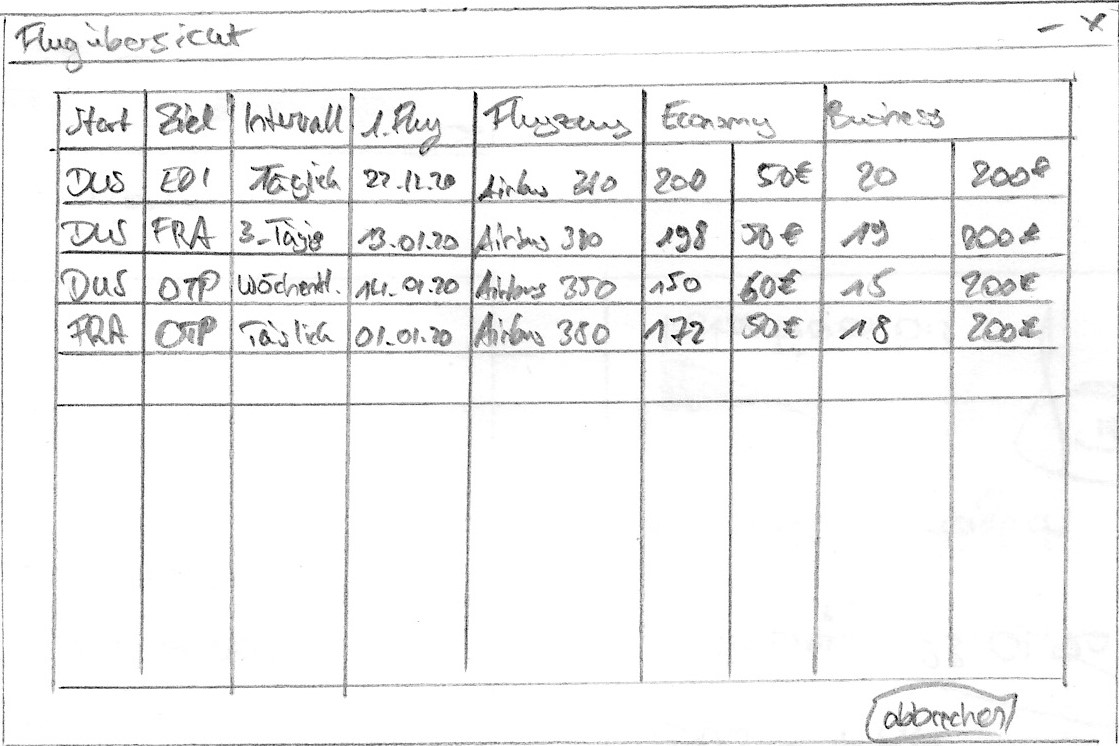 Flugübersicht – X
Start Ziel Intervall 1. Flug Flugzeug Economy Business
DUS EDI Täglich 22.12.20 Airbus 200 50€ 20 200€
DUS FRA 3-Tägig 13.01.20 Airbus 380 198 50€ 19 200€
DUS OTP Wöchentl. 14.01.20 Airbus 350 150 60€ 15 200€
FRA OTP Täglich 01.01.20 Airbus 380 172 50€ 18 200€
abbrechen